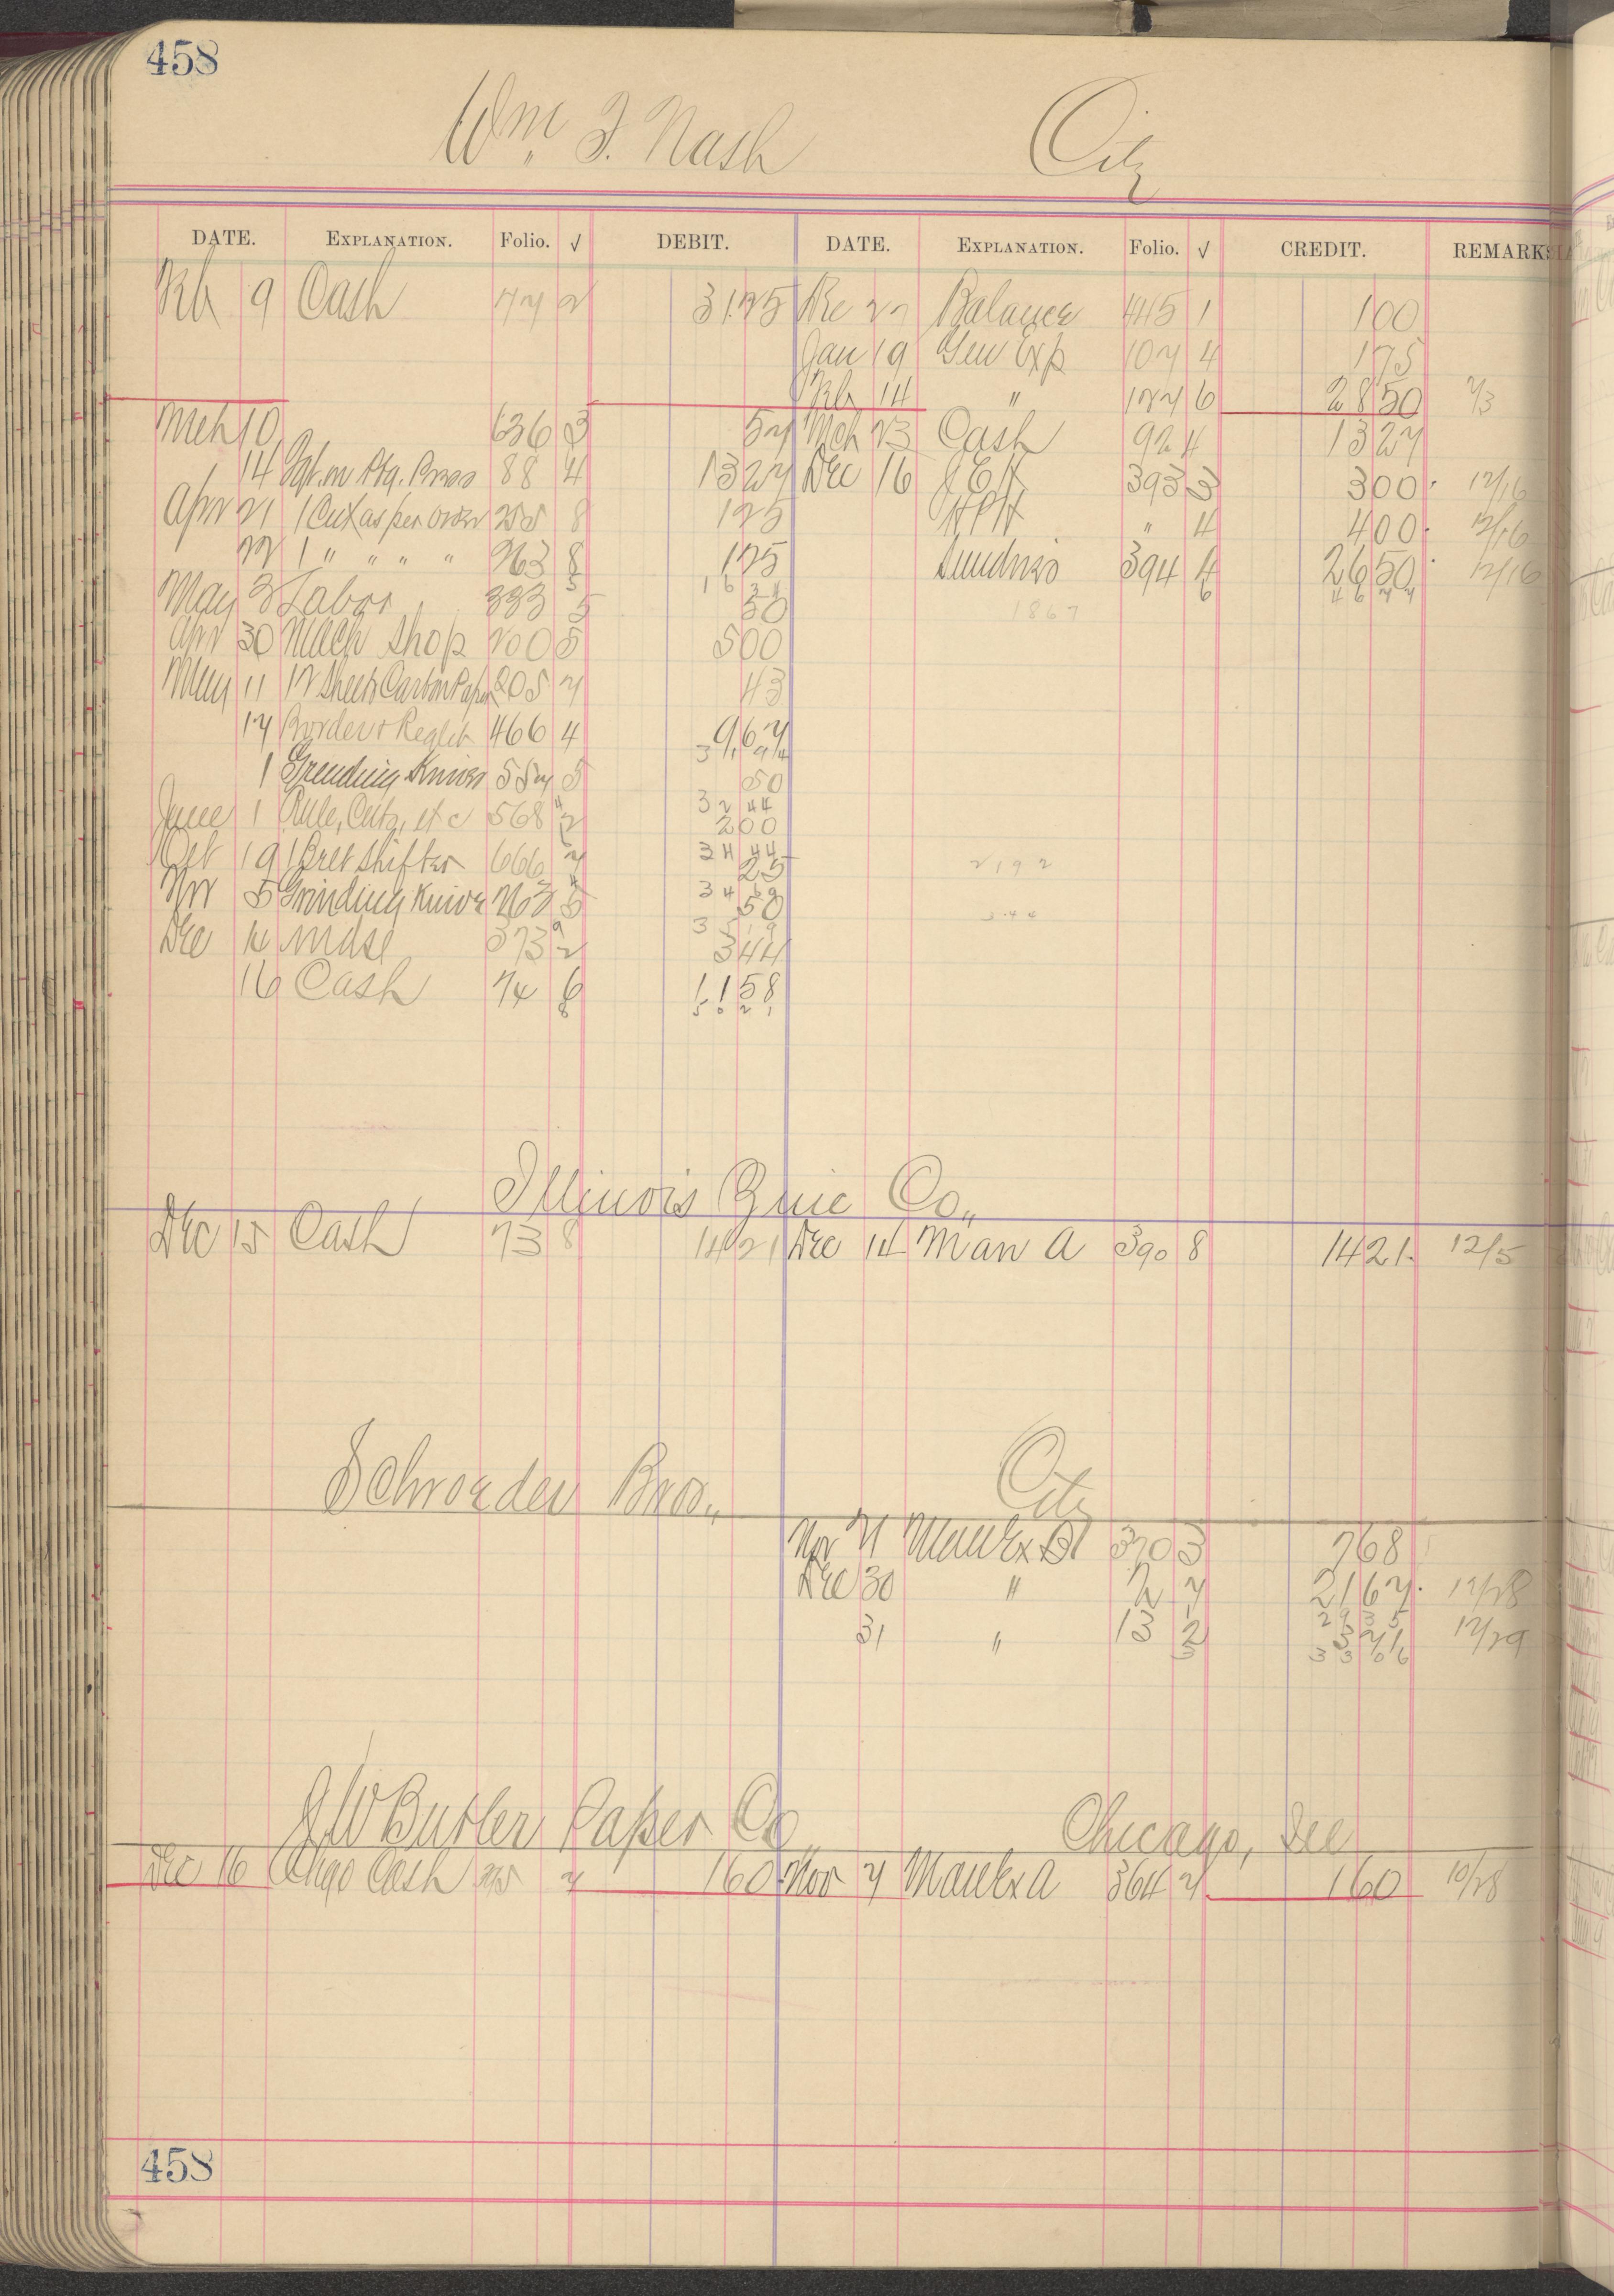 458
Wm. F. Nash City
DATE. EXPLANATION. Folio. √ DEBIT. DATE. EXPLANATION. Folio. √ CREDIT. REMARKS
Feb 9 Cash 77 2 3125 Dec 27 Balance 445 1 100
Jan 19 Gen Exp 107 4 175
Feb 14 " 127 6 2850 2/3
Mch 10 636 3 57 Mch 23 Cash 92 4 1327
14 on Ptg. Press 88 4 1327 Dec 16 J E H 393 3 300 12/16
Apr 21 1 Cut as per order 255 8 125 H P H " 4 400 12/16
22 1 " " " " 263 8 125 Sundries 394 4 2650 12/16
1631 6 4677
May 3 Labor 333 5 50 1867
Apr 30 Mach Shop 200 5 500
May 11 12 Sheets Carbon Paper 205 7 43
17 Border & Reglet 466 4 967
3194
1 Grinding Knives 557 5 50
3244
June 1 Rule, Cuts, etc 568 2 200
3444
Oct 19 1 Belt Shifter 666 7 25 2192
3469
Nov 5 Grinding Knive 703 5 50 344
3519
Dec 14 Mdse 373 2 344
16 Cash 74 6 1158
8 5021
Illinois Zinc Co.,
Dec 15 Cash 73 8 1421 Dec 14 Man A 390 8 1421 12/5
Schroeder Bros., City
Nov 21 Man Ex 370 3 768
Dec 30 " 12 7 2167 12/28
2935
31 " 13 2 371 12/29
3306
J W Butler Paper Co Chicago, Ill
Dec 16 Chgo Cash 25 7 160 Nov 7 Man Ex A 364 7 160 10/28
458